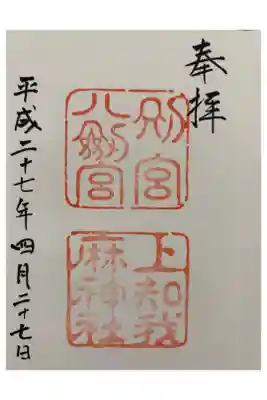 奉拝
別宮
八劔宮
上知我
麻神社
平成二十七年四月二十七日